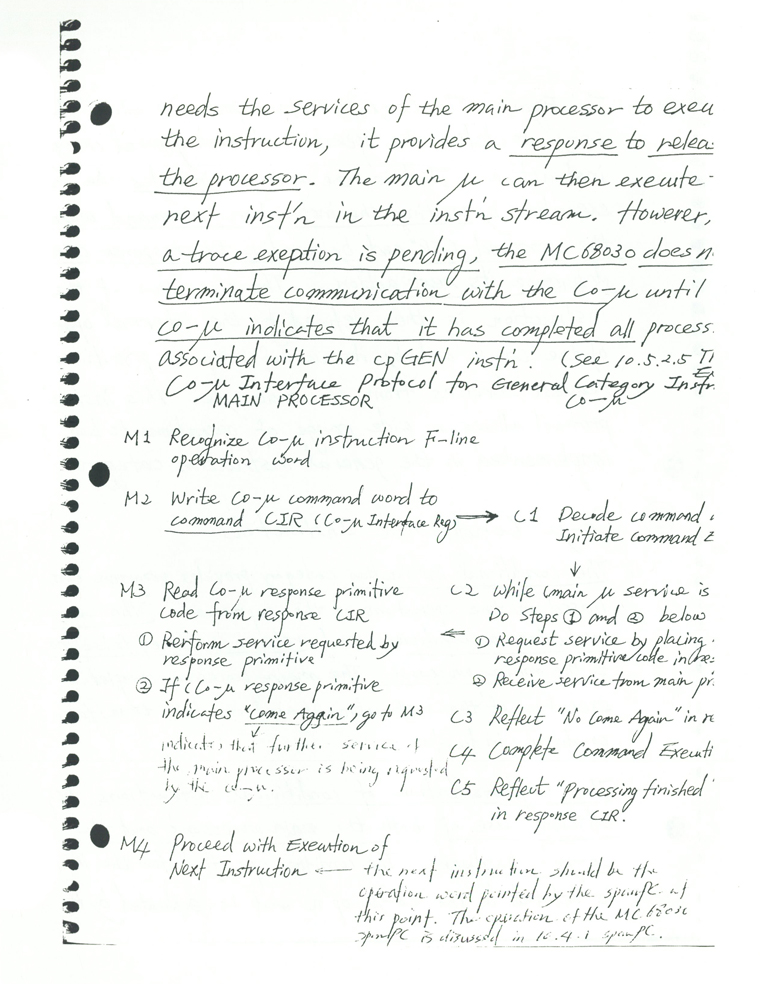 needs the services of the main processor to execu
the instruction, it provides a response to relea
the processor. The main μ can then execute
next inst'n in the inst'n stream. However,
a trace exeption is pending, the MC68030 does n
terminate communication with the Co-μ until
co-μ indicates that it has completed all process
associated with the cpGEN inst'n. (See 10.5.2.5 T
Co-μ Interface Protocol for General Category Instr.
MAIN PROCESSOR Co-μ
M1 Recognize Co-μ instruction F-line
operation word
M2 Write Co-μ command word to
command CIR (Co-μ Interface Reg) → C1 Decode command
Initiate Command E
↓
M3 Read Co-μ response primitive
code from response CIR
① Perform service requested by
response primitive
② If (Co-μ response primitive
indicates "Come Again", go to M3
indicates that further service of
the main processor is being requested
by the co-μ.
C2 while (main μ service is
Do Steps ① and ② below
← ① Request service by placing
response primitive code in
② Receive service from main pr
C3 Reflect "No Come Again" in re
C4 Complete Command Executi
C5 Reflect "Processing finished"
in response CIR.
M4 Proceed with Execution of
Next Instruction ← the next instruction should be the
operation word pointed by the scanPC at
this point. The operation of the MC68030
scanPC is discussed in 10.4.1 scanPC.